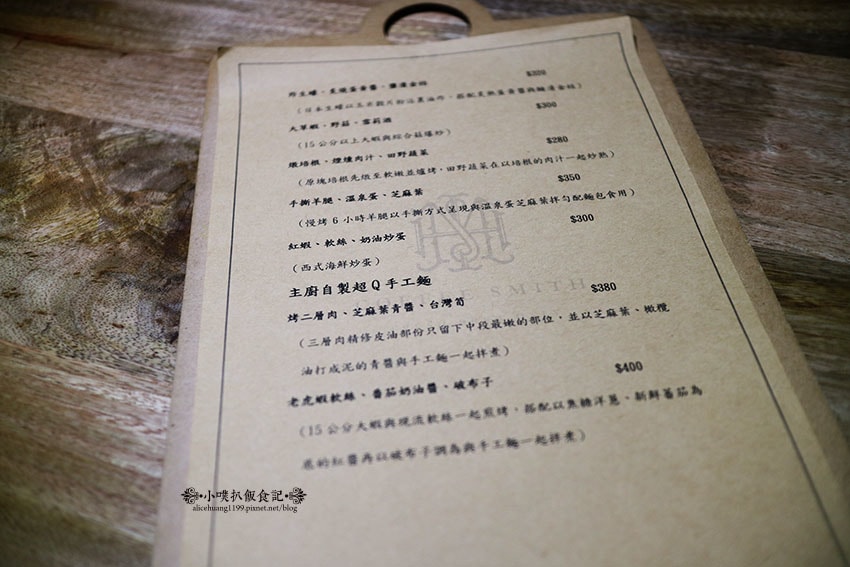 炸生蠔、炙燒蛋黃醬、鹽漬金桔 $320
(日本生蠔以玉米穀片粉沾裹油炸，搭配炙燒蛋黃醬與鹽漬金桔)
大草蝦、野菇、雪莉酒 $300
(15公分以上大蝦與綜合菇爆炒)
燉培根、煙燻肉汁、田野蔬菜 $280
(原塊培根先燉至軟嫩並爐烤，田野蔬菜在以培根的肉汁一起炒熟)
手撕羊腿、溫泉蛋、芝麻葉 $350
(慢烤6小時羊腿以手撕方式呈現與溫泉蛋芝麻葉拌勻配麵包食用)
紅蝦、軟絲、奶油炒蛋 $300
(西式海鮮炒蛋)
SMITH
主廚自製超Q手工麵
烤二層肉、芝麻葉青醬、台灣筍 $380
(三層肉精修皮油部份只留下中段最嫩的部位，並以芝麻葉、橄欖
油打成泥的青醬與手工麵一起拌煮)
老虎蝦軟絲、番茄奶油醬、破布子 $400
(15公分大蝦與現流軟絲一起煎烤，搭配以焦糖洋蔥、新鮮蕃茄為
底的紅醬再以破布子調為與手工麵一起拌煮)
小噗扒飯食記
alicehuang1199.pixnet.net/blog